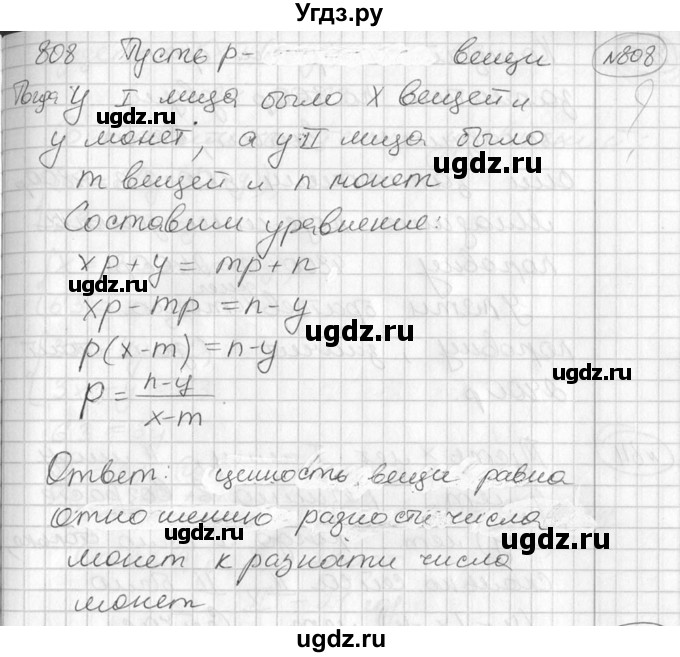 Угдз.ру
808 Пусть р- вещи №808
Тогда у I лица было х вещей и
у монет, а у II лица было
m вещей и n монет
Составим уравнение:
xp+y=mp+n
xp-mp=n-y
p(x-m)=n-y
p=\frac{n-y}{x-m}
Ответ: ценность вещи равна
отношению разности числа
монет к разности числа
монет
ugdz.ru
ugdz.ru
ugdz.ru
ugdz.ru
ugdz.ru
ugdz.ru
ugdz.ru
ugdz.ru
ugdz.ru